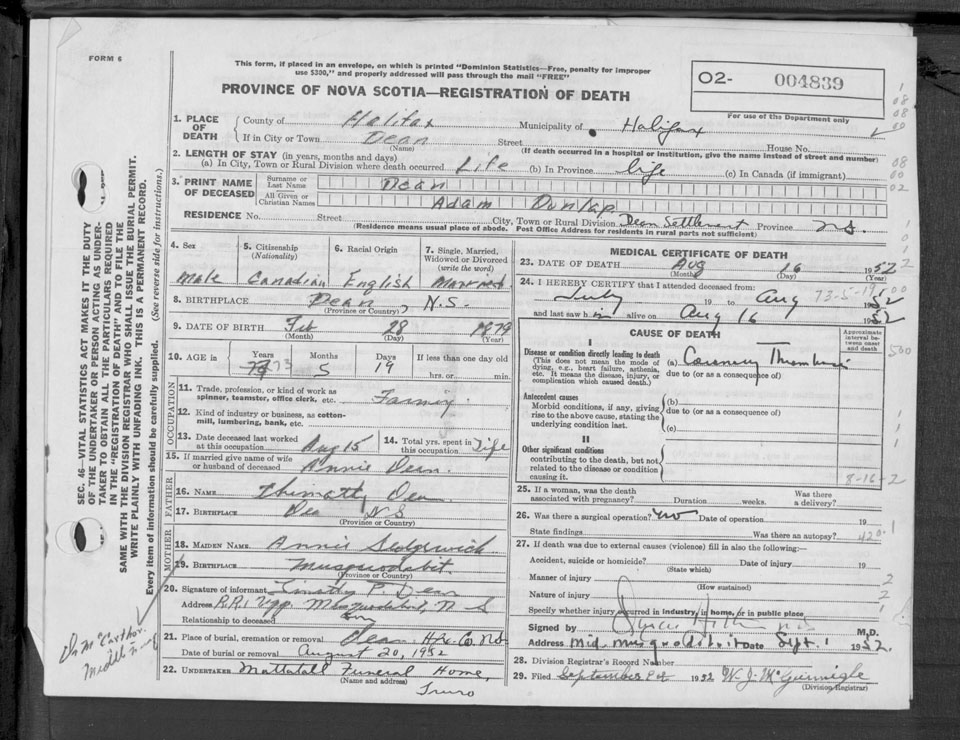 FORM 6
This form, if placed in an envelope, on which is printed "Dominion Statistics—Free, penalty for improper
use $300," and properly addressed will pass through the mail "FREE"
PROVINCE OF NOVA SCOTIA—REGISTRATION OF DEATH
02- 004839
For use of the Department only
1. PLACE OF DEATH County of Halifax Municipality of Halifax
If in City or Town Dean Street House No.
(Name) (If death occurred in a hospital or institution, give the name instead of street and number)
2. LENGTH OF STAY (in years, months and days)
(a) In City, Town or Rural Division where death occurred Life (b) In Province life (c) In Canada (if immigrant)
3. PRINT NAME OF DECEASED Surname or Last Name Dean
All Given or Christian Names Adam Dunlap
RESIDENCE No. Street City, Town or Rural Division Dean Settlement Province N.S.
(Residence means usual place of abode. Post Office Address for residents in rural parts not sufficient)
4. Sex Male
5. Citizenship (Nationality) Canadian
6. Racial Origin English
7. Single, Married, Widowed or Divorced (write the word) Married
8. BIRTHPLACE Dean, N.S.
(Province or Country)
9. DATE OF BIRTH Feb 28 1879
(Month) (Day) (Year)
10. AGE in Years 73 Months 5 Days 19 If less than one day old
hrs. or min.
OCCUPATION
11. Trade, profession, or kind of work as spinner, teamster, office clerk, etc. Farming
12. Kind of industry or business, as cotton-mill, lumbering, bank, etc.
13. Date deceased last worked at this occupation Aug 15 14. Total yrs. spent in this occupation Life
15. If married give name of wife or husband of deceased Annie Dean.
FATHER
16. NAME Dean
17. BIRTHPLACE Dea N S
(Province or Country)
MOTHER
18. MAIDEN NAME Annie Sedgewick
19. BIRTHPLACE Musquodobit.
(Province or Country)
20. Signature of informant Timothy P. Dean
Address R.R.1 Upp. Musquodobit, N S
Relationship to deceased Son
21. Place of burial, cremation or removal Dean Hfx. Co. N.S.
Date of burial or removal August 20, 1952
22. UNDERTAKER Mattatall Funeral Home,
(Name and address) Truro
MEDICAL CERTIFICATE OF DEATH
23. DATE OF DEATH Aug 16 1952
(Month) (Day) (Year)
24. I HEREBY CERTIFY that I attended deceased from:
July 19 to Aug 1952
73-5-19
and last saw him alive on Aug 16 1952
CAUSE OF DEATH
Approximate interval between onset and death
I
Disease or condition directly leading to death (a) Coronary Thrombosis
(This does not mean the mode of dying, e.g., heart failure, asthenia, etc. It means the disease, injury, or complication which caused death.)
due to (or as a consequence of)
Antecedent causes
Morbid conditions, if any, giving rise to the above cause, stating the underlying condition last.
(b)
due to (or as a consequence of)
(c)
II
Other significant conditions
contributing to the death, but not related to the disease or condition causing it.
8-16-2
25. If a woman, was the death associated with pregnancy? Duration weeks. Was there a delivery?
26. Was there a surgical operation? no Date of operation 19
State findings Was there an autopsy?
27. If death was due to external causes (violence) fill in also the following:—
Accident, suicide or homicide? Date of injury 19
(State which)
Manner of injury
(How sustained)
Nature of injury
Specify whether injury occurred in industry, in home, or in public place
Signed by M.D.
Address Mid. Musquodoboit Date Sept. 1 1952.
28. Division Registrar's Record Number
29. Filed September 1952
(Division Registrar)
SEC. 46—VITAL STATISTICS ACT MAKES IT THE DUTY
OF THE UNDERTAKER OR PERSON ACTING AS UNDER-
TAKER TO OBTAIN ALL THE PARTICULARS REQUIRED
IN THE "REGISTRATION OF DEATH" AND TO FILE THE
SAME WITH THE DIVISION REGISTRAR WHO SHALL ISSUE THE BURIAL PERMIT.
WRITE PLAINLY WITH UNFADING INK. THIS IS A PERMANENT RECORD.
Every item of information should be carefully supplied. (See reverse side for instructions.)